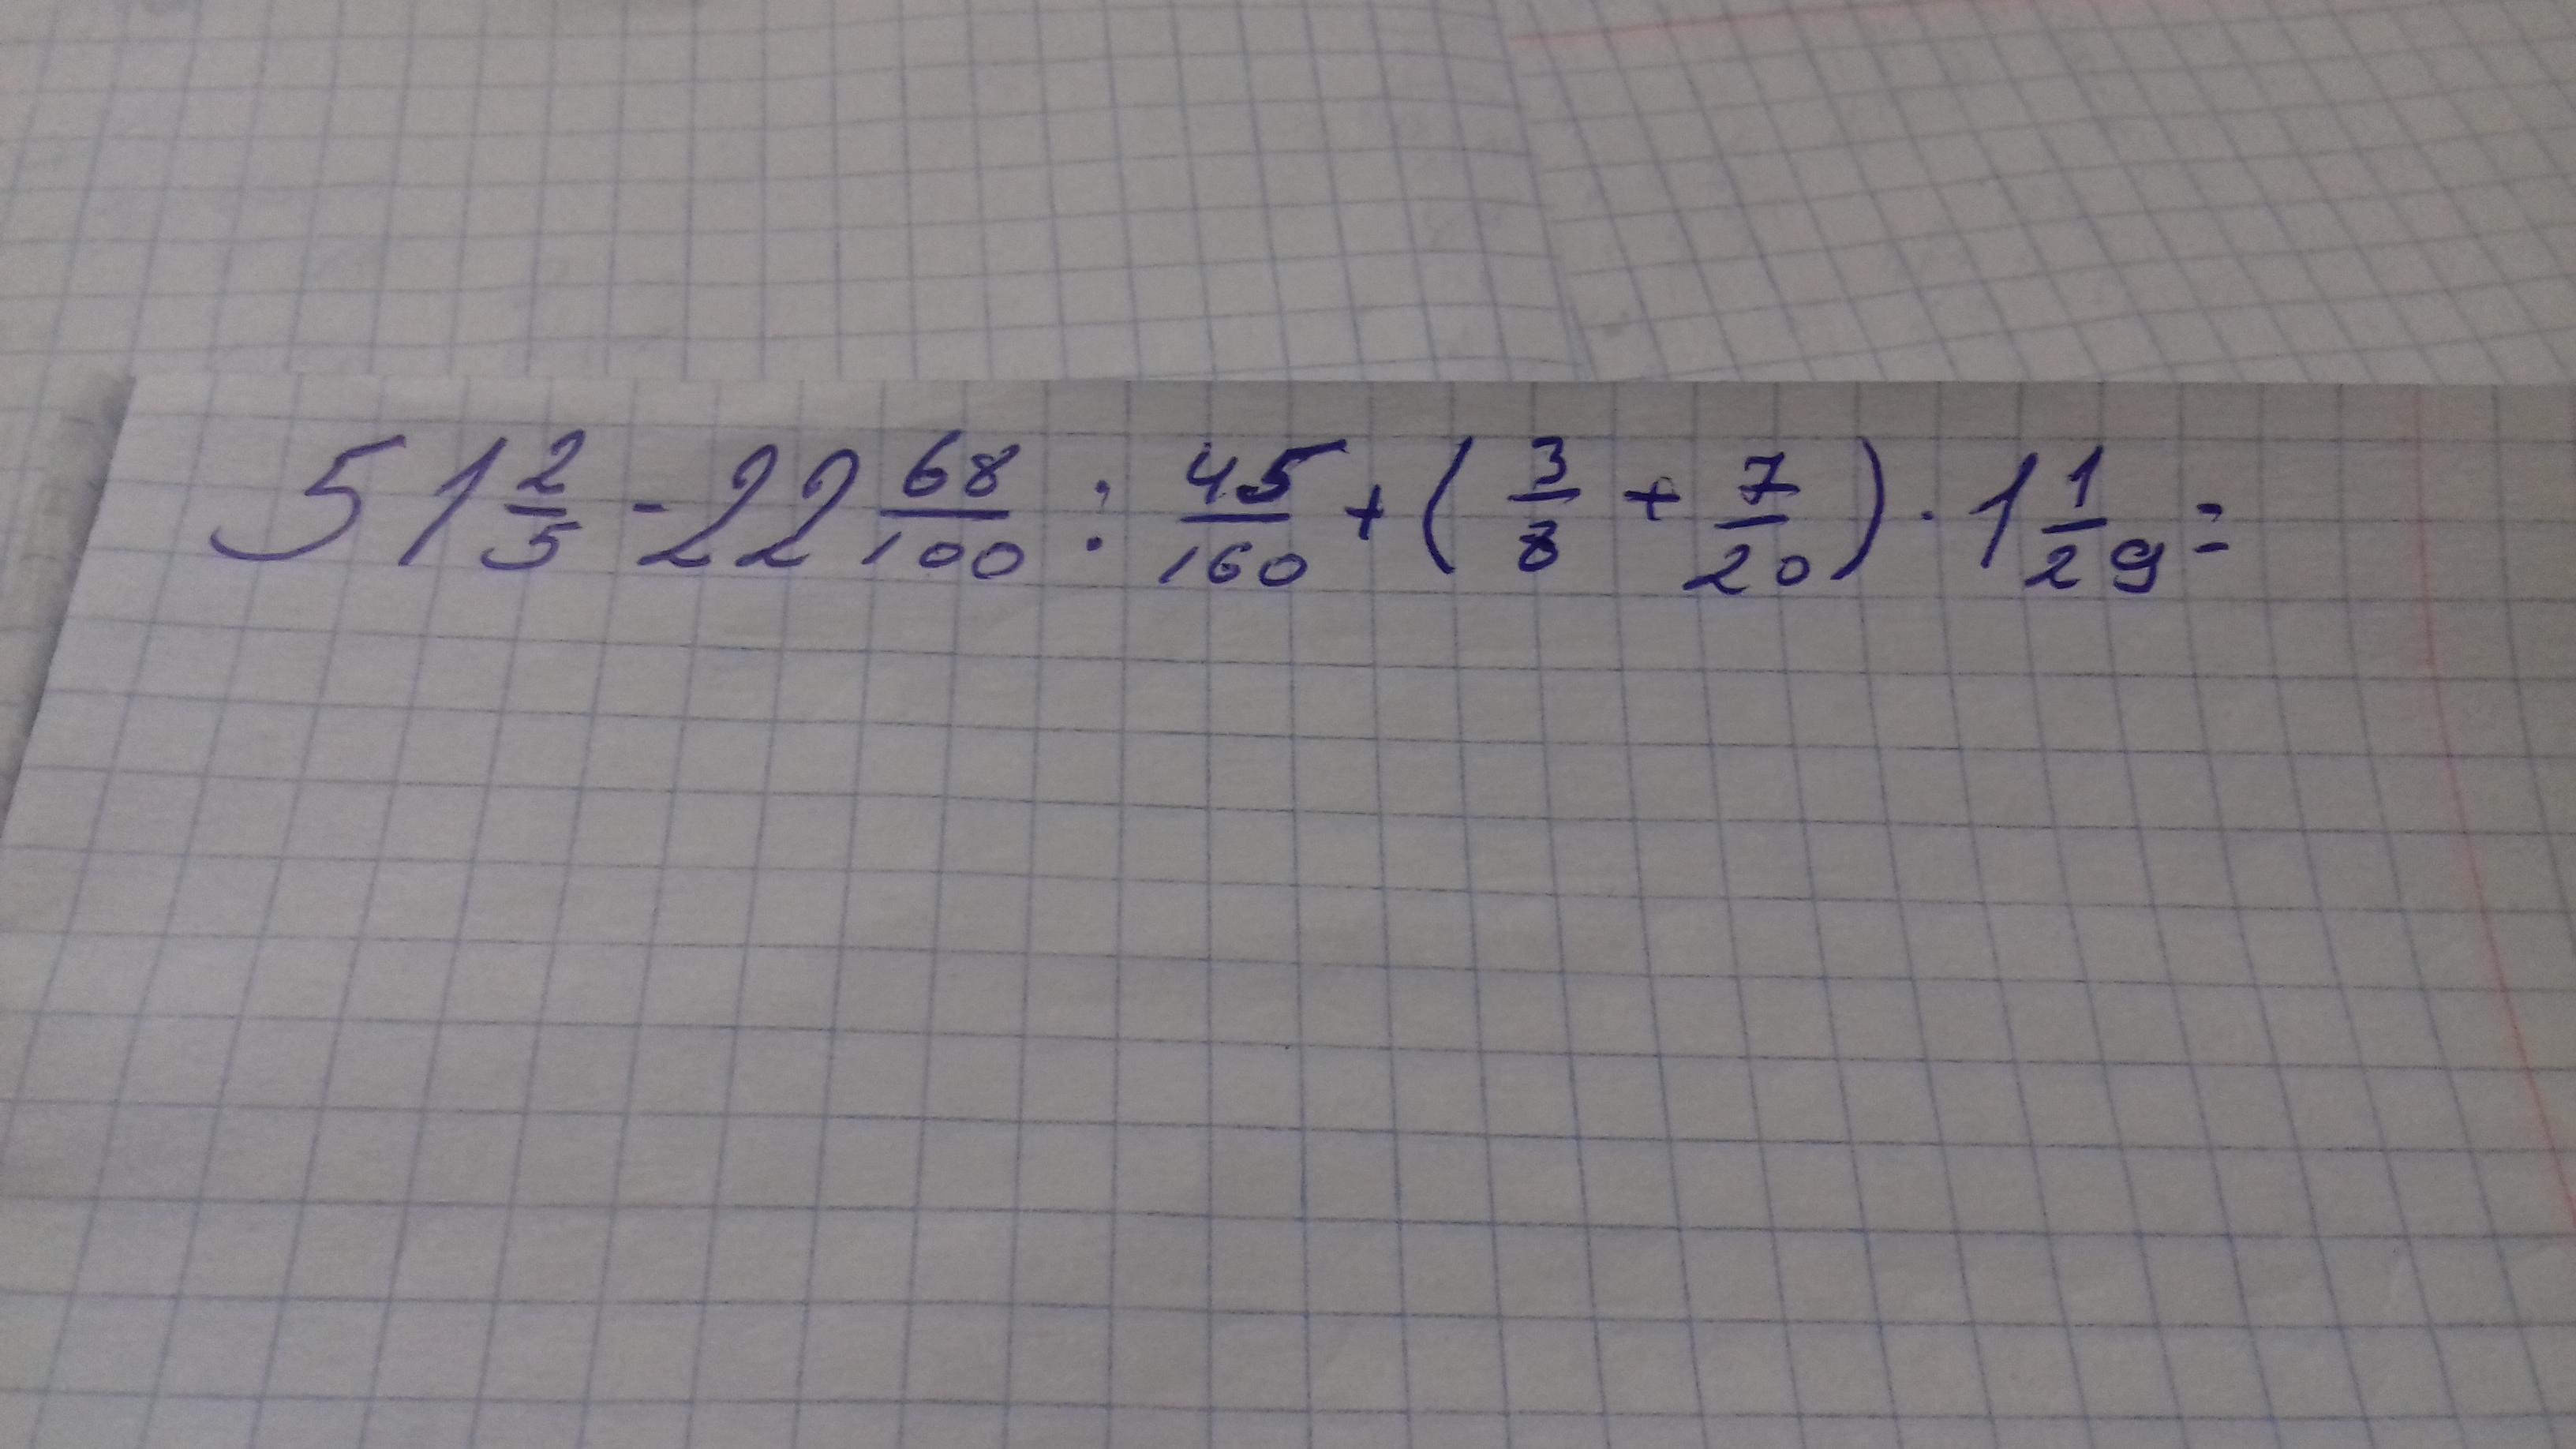 51 2/5 - 22 68/100 : 45/160 + ( 3/8 + 7/20 ) · 1 1/29 =